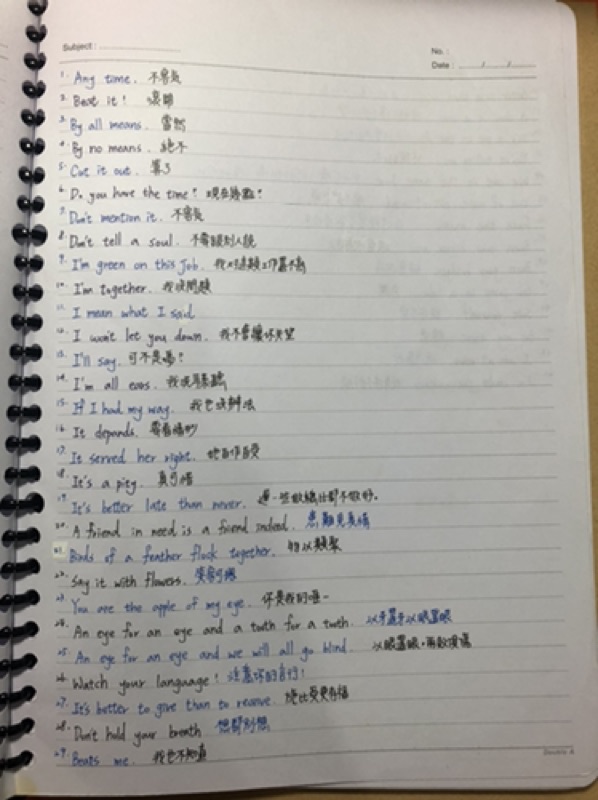 Subject :
No. :
Date : / /
1. Any time. 不客氣
2. Beat it! 滾開
3. By all means. 當然
4. By no means. 絕不
5. Cut it out. 算了
6. Do you have the time? 現在幾點?
7. Don't mention it. 不客氣
8. Don't tell a soul. 不要跟別人說
9. I'm green on this job. 我對這類工作還不熟
10. I'm together. 我沒問題
11. I mean what I said
12. I won't let you down. 我不會讓你失望
13. I'll say. 可不是嗎?
14. I'm all ears. 我洗耳恭聽
15. If I had my way. 我也沒辦法
16. It depends. 要看情形
17. It served her right. 她自作自受
18. It's a pity. 真可惜
19. It's better late than never. 遲一些做總比都不做好。
20. A friend in need is a friend indeed. 患難見真情
21. Birds of a feather flock together. 物以類聚
22. Say it with flowers.
23. You are the apple of my eye. 你是我的唯一
24. An eye for an eye and a tooth for a tooth. 以牙還牙以眼還眼
25. An eye for an eye and we will all go blind. 以眼還眼,兩敗俱傷
26. Watch your language! 注意你的言行!
27. It's better to give than to receive. 施比受更有福
28. Don't hold your breath. 想都別想
29. Beats me. 我也不知道
Double A